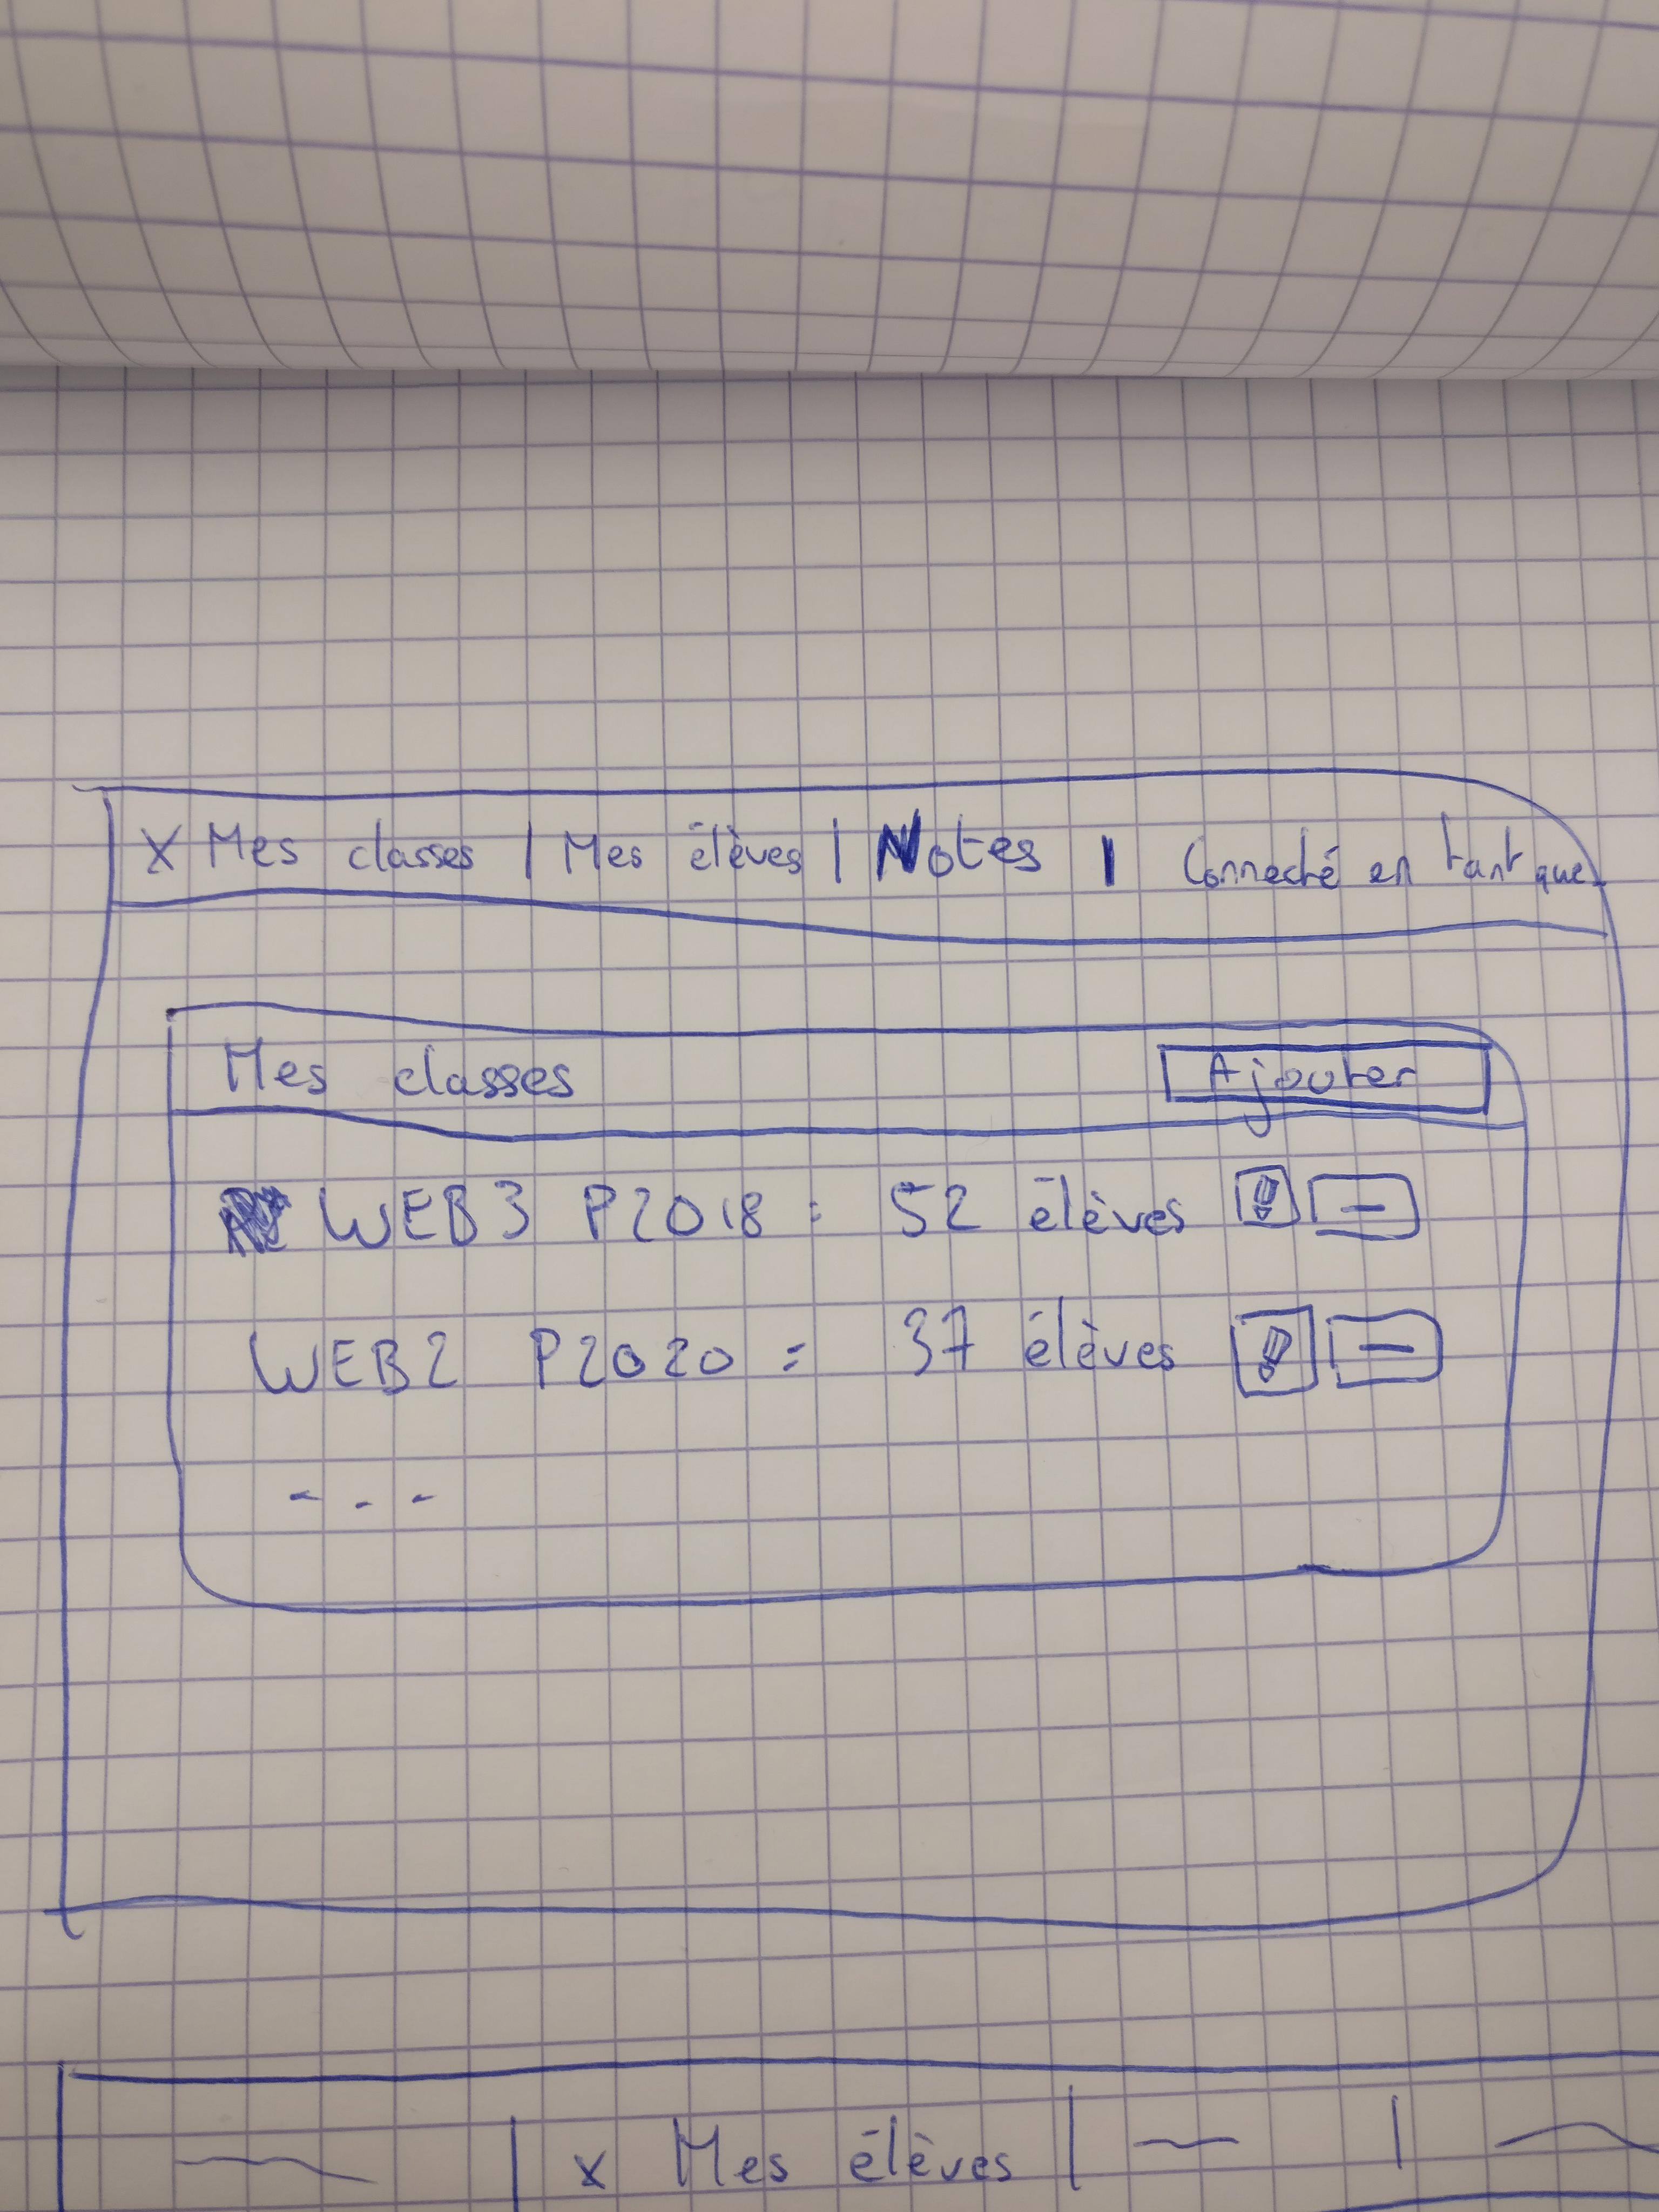 X Mes classes | Mes élèves | Notes | Connecté en tant que
Mes classes Ajouter
WEB3 P2018 : 52 élèves -
WEB2 P2020 : 37 élèves -
...
| x Mes élèves | |